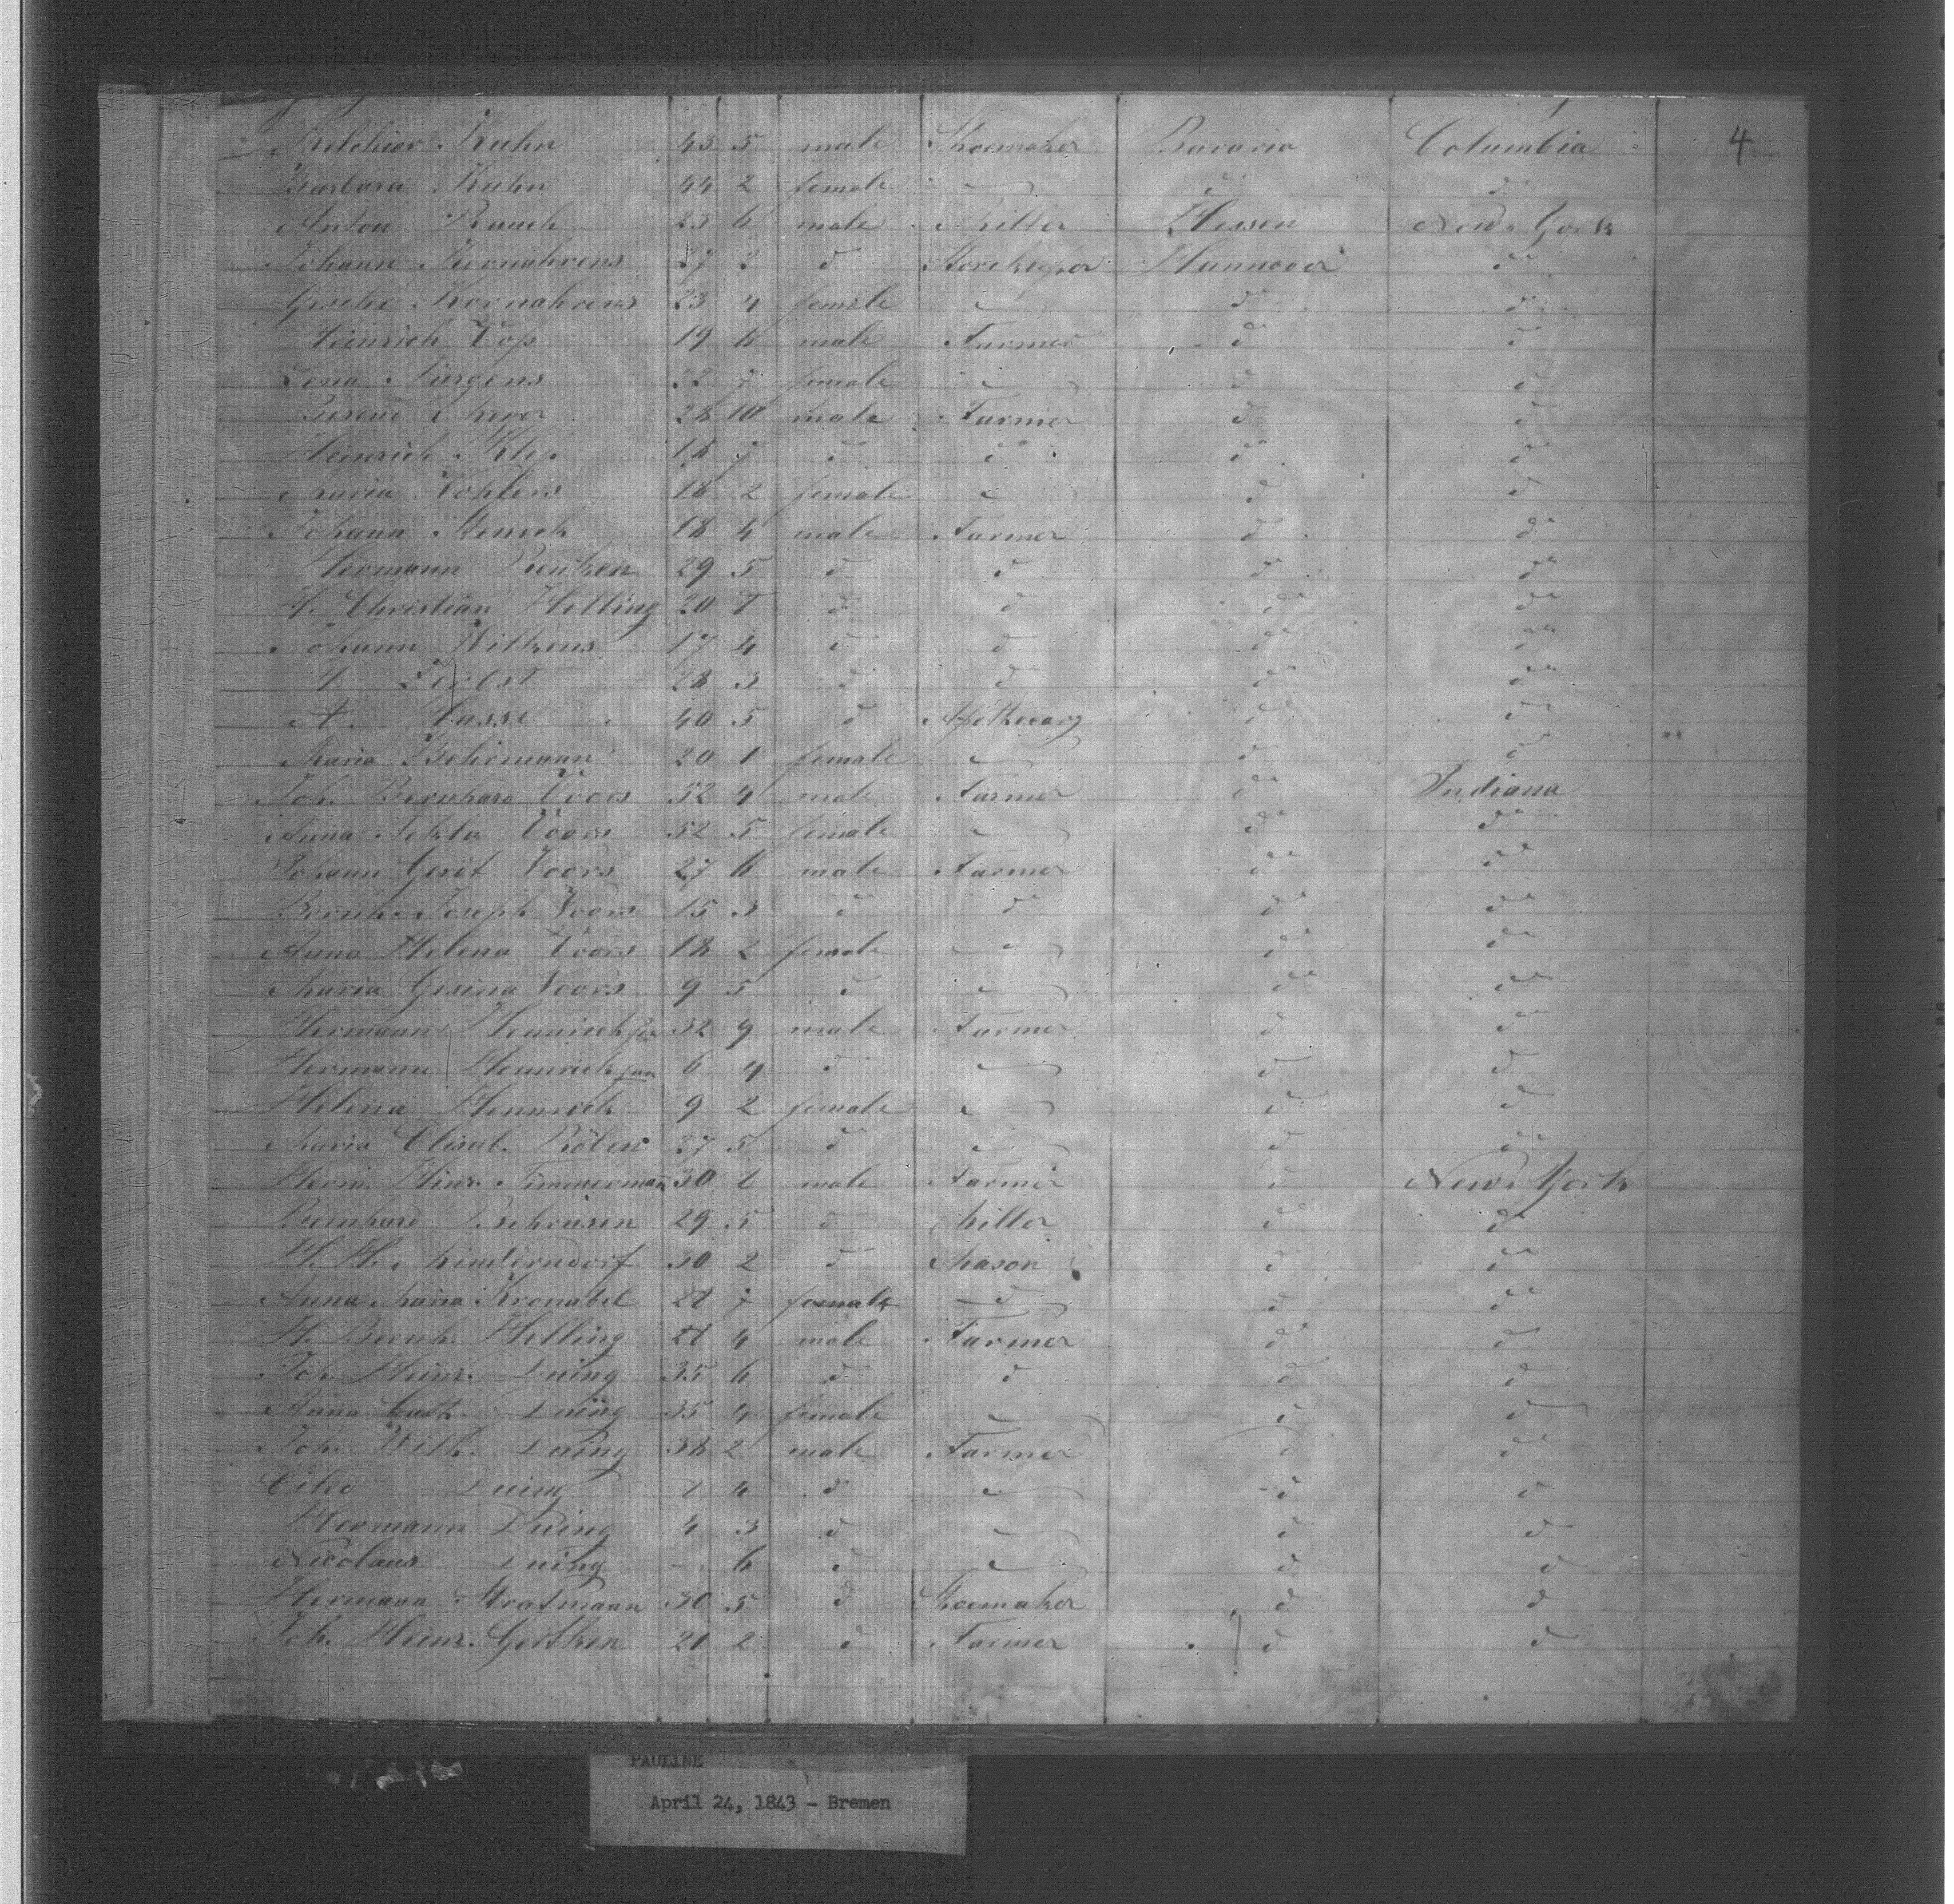 4
Melchior Kuhn 43 5 male Shoemaker Bavaria Columbia
Barbara Kuhn 44 2 female — do do
Anton Rauch 23 6 male Miller Hessen New-York
Johann Kornahrens 27 2 do Storekeeper Hannover do
Gesche Kornahrens 23 4 female — do do
Heinrich Vos 19 6 male Farmer do do
Lena Jürgens 32 7 female — do do
Berend 28 10 male Farmer do do
Heinrich 18 7 do do do do
Maria Nohlers 18 2 female — do do
Johann 18 4 male Farmer do do
Hermann Renken 29 5 do do do do
H. Christian Helling 20 do do do do
Johann Wilkens 17 4 do do do do
28 3 do do do do
A. Hasse 40 5 do Apothecary do do
Maria Behrmann 20 1 female — do do
Joh. Bernhard Voors 52 4 male Farmer do Indiana
Anna Tekla Voors 52 5 female — do do
Johann Gerdt Voors 27 6 male Farmer do do
Bernh. Joseph Voors 15 3 do do do do
Anna Helena Voors 18 2 female — do do
Maria Gesina Voors 9 5 do — do do
Hermann Hennrich sen 32 9 male Farmer do do
Hermann Hennrich jun 6 4 do — do do
Helena Hennrich 9 2 female — do do
Maria Elisab. 27 5 do — do do
Herm. Hinr. Timmermann 30 male Farmer do New-York
Bernhard 29 5 do Miller do do
H. H. 30 2 do Mason do do
Anna Maria Kronabel 7 female do do do
H. Bernh. Helling 21 4 male Farmer do do
Joh. Heinr. Duing 35 6 do do do do
Anna Cath. Duing 35 4 female — do do
Joh. Wilh. Duing 38 2 male Farmer do do
Duing 4 do — do do
Hermann Duing 4 3 do — do do
Nicolaus Duing — 6 do — do do
Hermann Stratmann 30 5 do Shoemaker do do
Joh. Heinr. Gertken 21 2 do Farmer do do
PAULINE
April 24, 1843 - Bremen